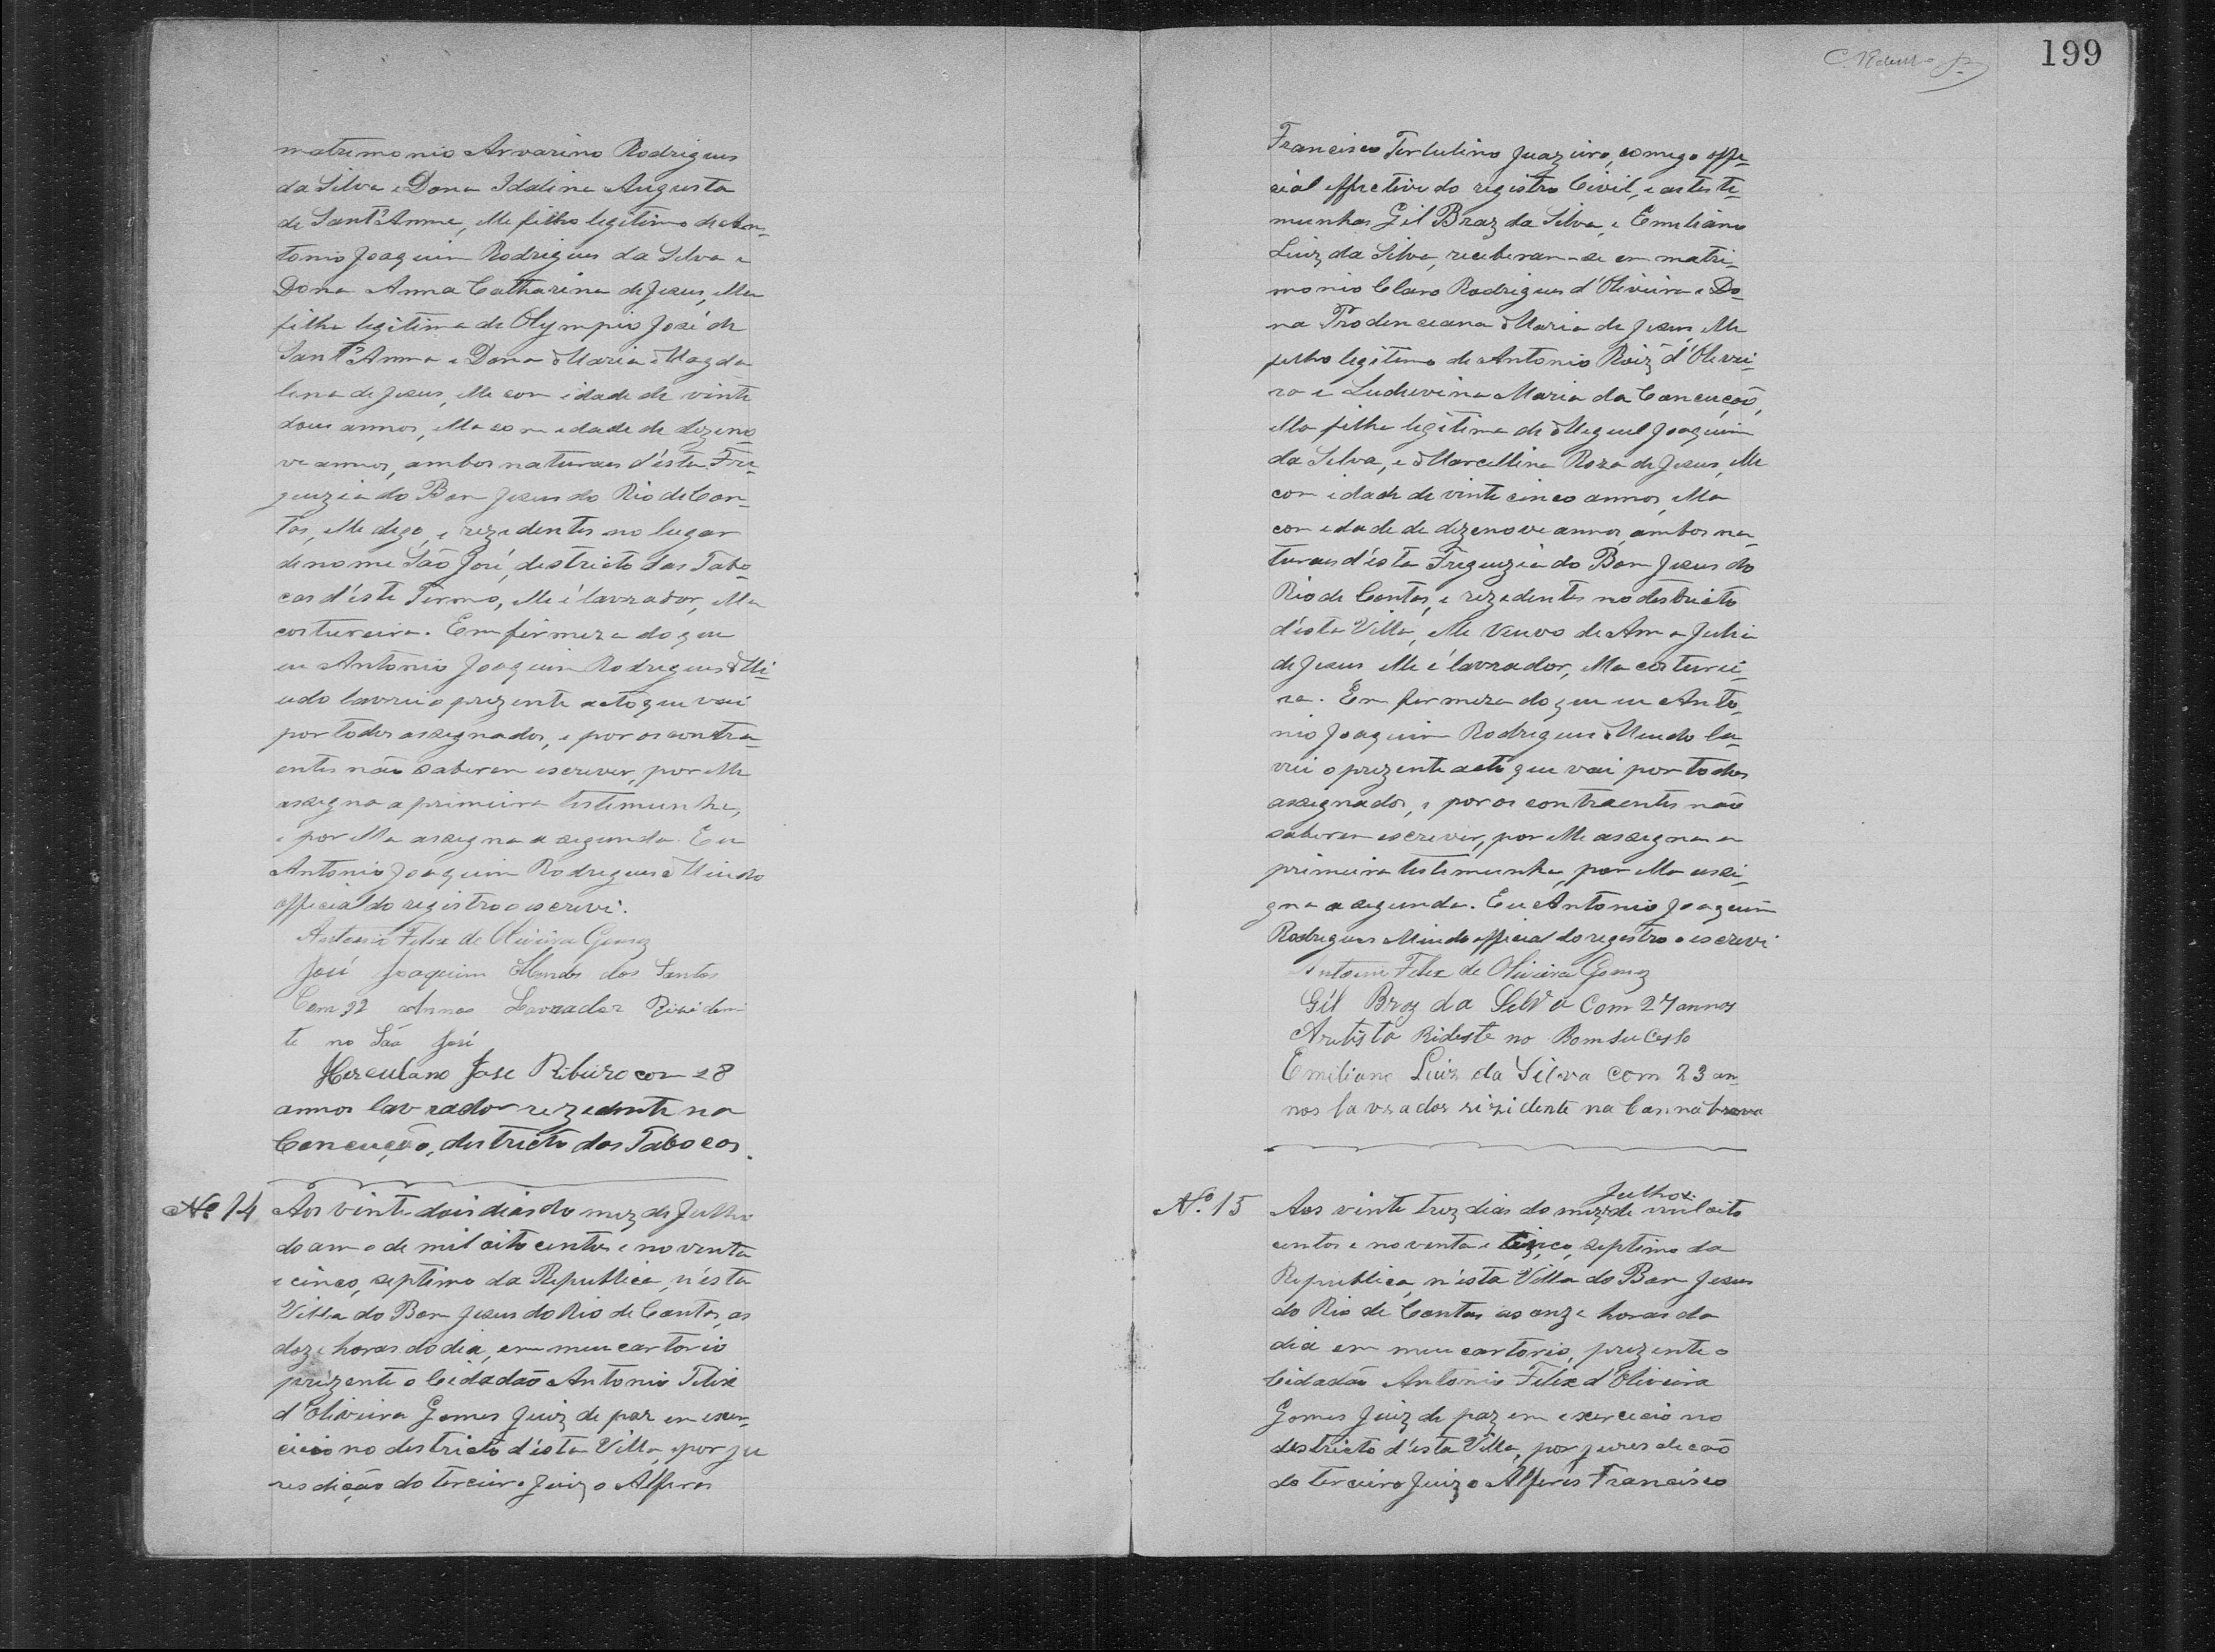 matremonio Arvarino Rodrigues
da Silva e Dona Idalina Augusta
de Sant'Anna, elle filho legitimo de An-
tonio Joaquim Rodrigues da Silva e
Dona Anna Catharina de Jesus, ella
filha legitima de Olympio José de
Sant'Anna e Dona Maria Magda
lena de Jesus, elle com idade de vinte
dous annos, ella com edade de dezeno-
ve annos, ambos naturaes d'esta Fre-
guezia do Bom Jesus do Rio de Con-
tas, elle digo, e rezedentes no lugar
de nome São José, destricto das Tabo-
cas d'este Termo, elle é lavrador, ella
costureira. Em firmeza do que
eu Antonio Joaquim Rodrigues Mi-
udo lavrei o prezente acto que vai
por todos assignados, e por os contra-
entes não saberem escrever, por elle
assegna a primeira testemunha,
e por ella assegna a segunda. Eu
Antonio Joaquim Rodrigues Miudo
official do registro o escrevi.
Antonio Felix de Oliveira Gomes
José Joaquim Mendes dos Santos
Com 32 Annos Lavrador Residen-
te no São José
Herculano Jose Ribeiro com 28
annos lavrador rezedente na
Conceição, destricto das Tabocas.
Nº 14 Aos vinte dois dias do mez de Julho
do anno de mil oito centos e noventa
e cinco, septimo da Republica, n'esta
Villa do Bom Jesus do Rio de Contas, as
doze horas do dia, em meu cartorio
prezente o Cidadão Antonio Felix
d'Oliveira Gomes Juiz de paz em exer-
cicio no destricto d'esta Villa, por ju
resdição do terceiro Juiz o Alferes
199
Francisco Tertulino Juazeiro, comego offi-
cial effectivo do registro Civil, e as teste-
munhas Gil Braz da Silva, e Emeliano
Luiz da Silva, receberam-se em matri-
monio Claro Rodrigues d'Oliveira e Do-
na Prodenceana Maria de Jesus, elle
filho legitimo de Antonio Roiz d'Olivei-
ra e Ludevina Maria da Conceição,
ella filha legitima de Meguel Joaquim
da Silva, e Marcellina Roza de Jesus, elle
com idade de vinte cinco annos, ella
com edade de dezenove annos, ambos na-
turaes d'esta Freguezia do Bom Jesus do
Rio de Contas, e rezedentes no destricto
d'esta Villa, elle veuvo de Anna Julia
de Jesus, elle é lavrador, ella costurei-
ra. Em fermeza do que eu Anto-
nio Joaquim Rodrigues Miudo la-
vrei o prezente acto que vai por todos
assegnados, e por os contraentes não
saberem escrever, por elle assegna a
primeira testemunha, por ella assi-
gna a segunda. Eu Antonio Joaquim
Rodrigues Miudo official do registro o escrevi
Antonio Felix de Oliveira Gomes
Gil Broz da Selva Com 27 annos
Artista Rideste no Bom Su Cesso
Emiliano Luiz da Silva Com 23 an-
nos lavrador rizidente na Cannabrava
Nº. 15 Aos vinte trez dias do mez de Julho de mil oito
centos e noventa e cinco, septimo da
Republica, n'esta Villa do Bom Jesus
do Rio de Contas as onze horas do
dia em meu cartorio, prezente o
Cidadão Antonio Felix d'Oliveira
Gomes Juiz de paz em exercecio no
destricto d'esta Villa, por juresdicão
do terceiro Juiz o Alferes Francisco